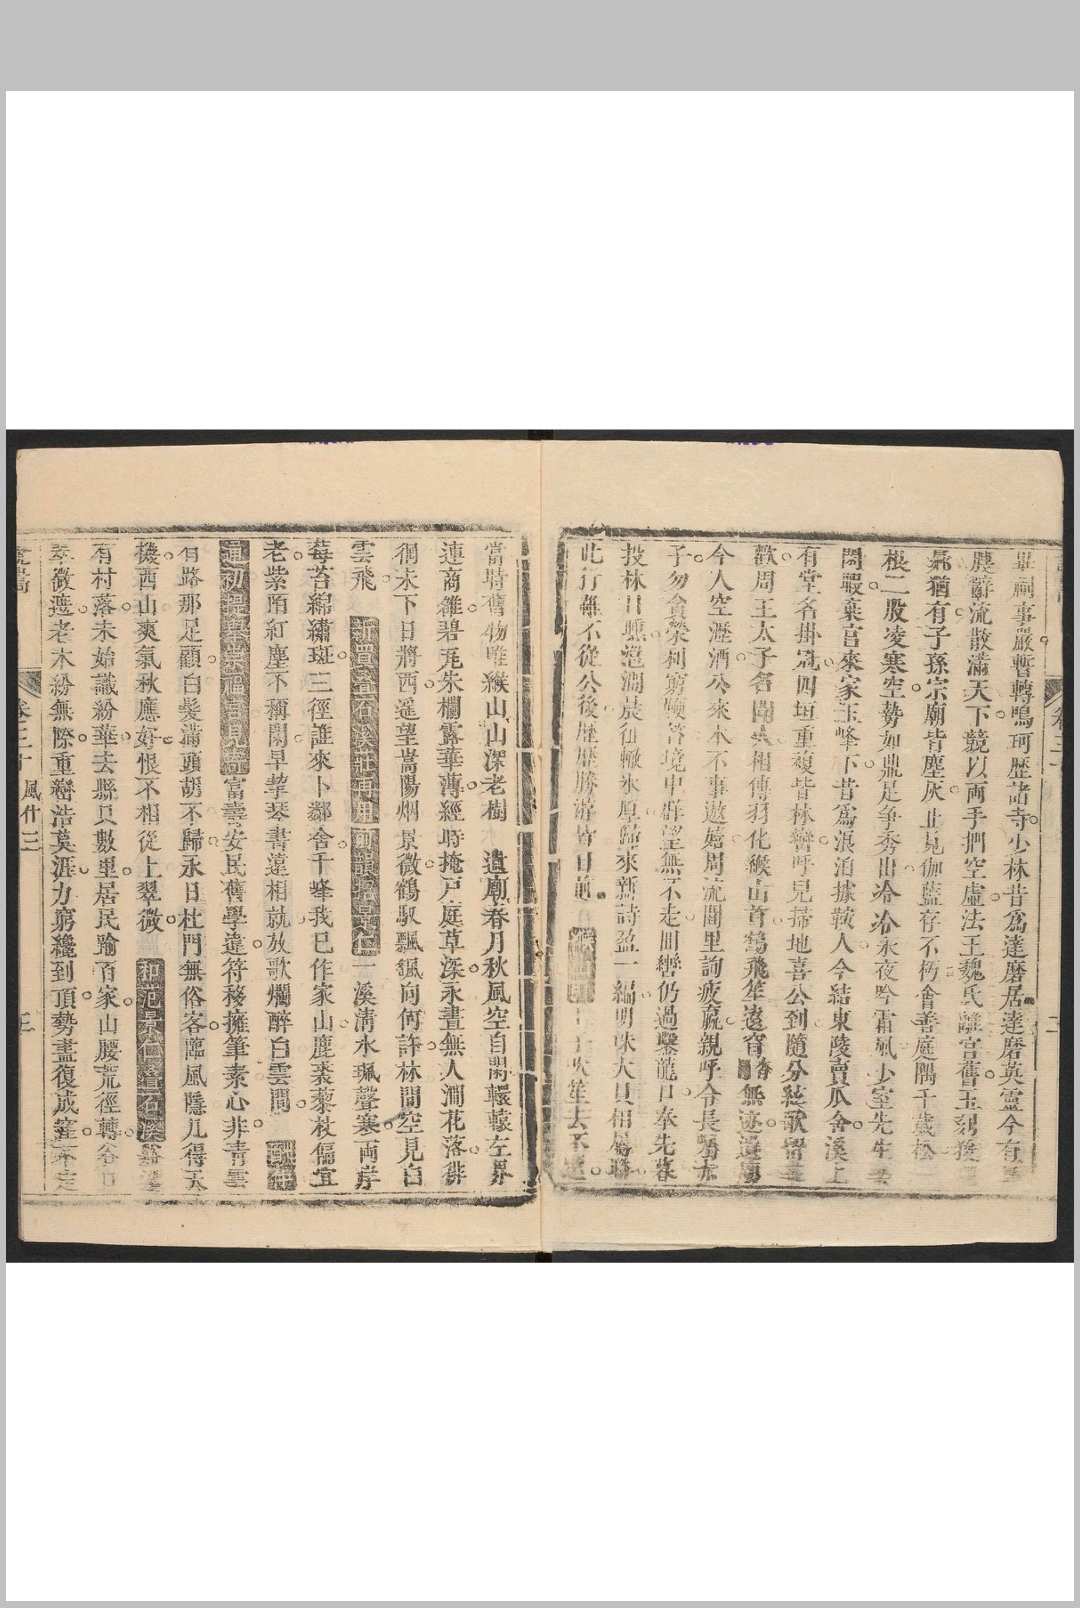 畢祠事嚴暫轉鳴珂歷諸寺少林昔為達磨居達磨英靈今有
流散滿天下競以両手捫空虛法王魏氏離宮舊玉刻
猶有子孫宗廟皆塵灰止見伽藍存不朽會善庭隅千歲松
根二股凌寒空勢如鼎足爭秀出冷冷永夜吟霜風少室先生
閑叚葉官來家玉峰下昔為浪泊據鞍人今結東陵賣瓜舍溪上
有堂名掛冠四垣重複皆林巒呼兒掃地喜公到隨分絃歌留
歡周王太子名聞相傳羽化緱山首鶴飛笙遠杳無迹遺廟
今人空瀝酒公來本不事遨嬉周流閭里詢疲羸親呼令長屬
予勿貪榮利剪顛答境中群望無不走回轡仍過鑿龍口奉先暮
投林日曛澄澗晨征轍氷厚歸來新詩盈一編明珠大貝相屬聯
此行雖不從公後歷歷勝游皆目前 吹笙去不
當時舊物唯緱山山深老樹 遺廟春月秋風空自閑轘轅左界
連商雒碧瓦朱欄露華薄經時掩戸庭草深永晝無人澗花落徘
徊未下日將西遥望嵩陽烟景微鶴馭飄飄向何許林間空見白
雲飛 新買登石溪莊再用前韻招景仁 一溪清水珮聲寒両岸
莓苔綿繡斑三徑誰來卜鄰舍千峰我已作家山鹿裘藜杖偏宜
老紫陌紅塵不稱閑早挈琴書遠相就放歌爛醉白雲間 酬仲
通初提舉崇福宮見寄 富壽安民舊學違符移擁筆素心非青雲
有路那足顧白髮滿頭胡不歸永日杜門無俗客臨風隱几得天
機西山爽氣秋應好恨不相從上翠微 和范景仁登石溪
有村落未始識紛華去縣只數里居民踰百家山腰荒徑轉谷口
翠微遮老木紛無際重巒浩莫涯力窮纔到頂勢盡復成窪
卷三十 風什 三